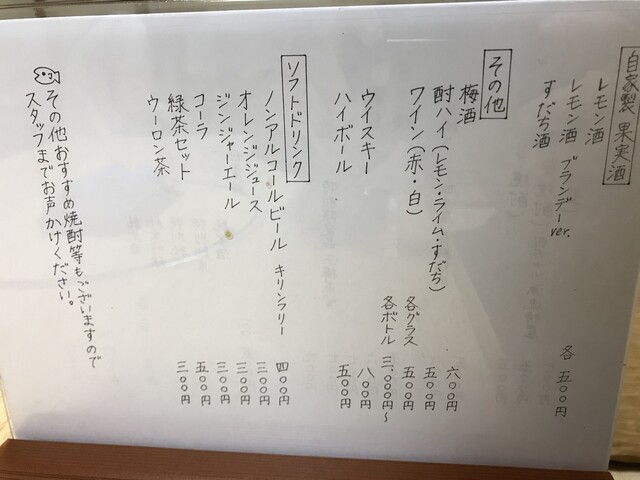 自家製 果実酒
レモン酒
レモン酒 ブランデーver.
すだち酒
各 五〇〇円
その他
梅酒 六〇〇円
酎ハイ(レモン・ライム・すだち) 五〇〇円
ワイン(赤・白) 各グラス 五〇〇円
各ボトル 三,〇〇〇円～
ウイスキー 八〇〇円
ハイボール 五〇〇円
ソフトドリンク
ノンアルコールビール キリンフリー 四〇〇円
オレンジジュース 三〇〇円
ジンジャーエール 三〇〇円
コーラ 三〇〇円
緑茶セット 五〇〇円
ウーロン茶 三〇〇円
その他おすすめ焼酎等もございますので
スタッフまでお声かけください。